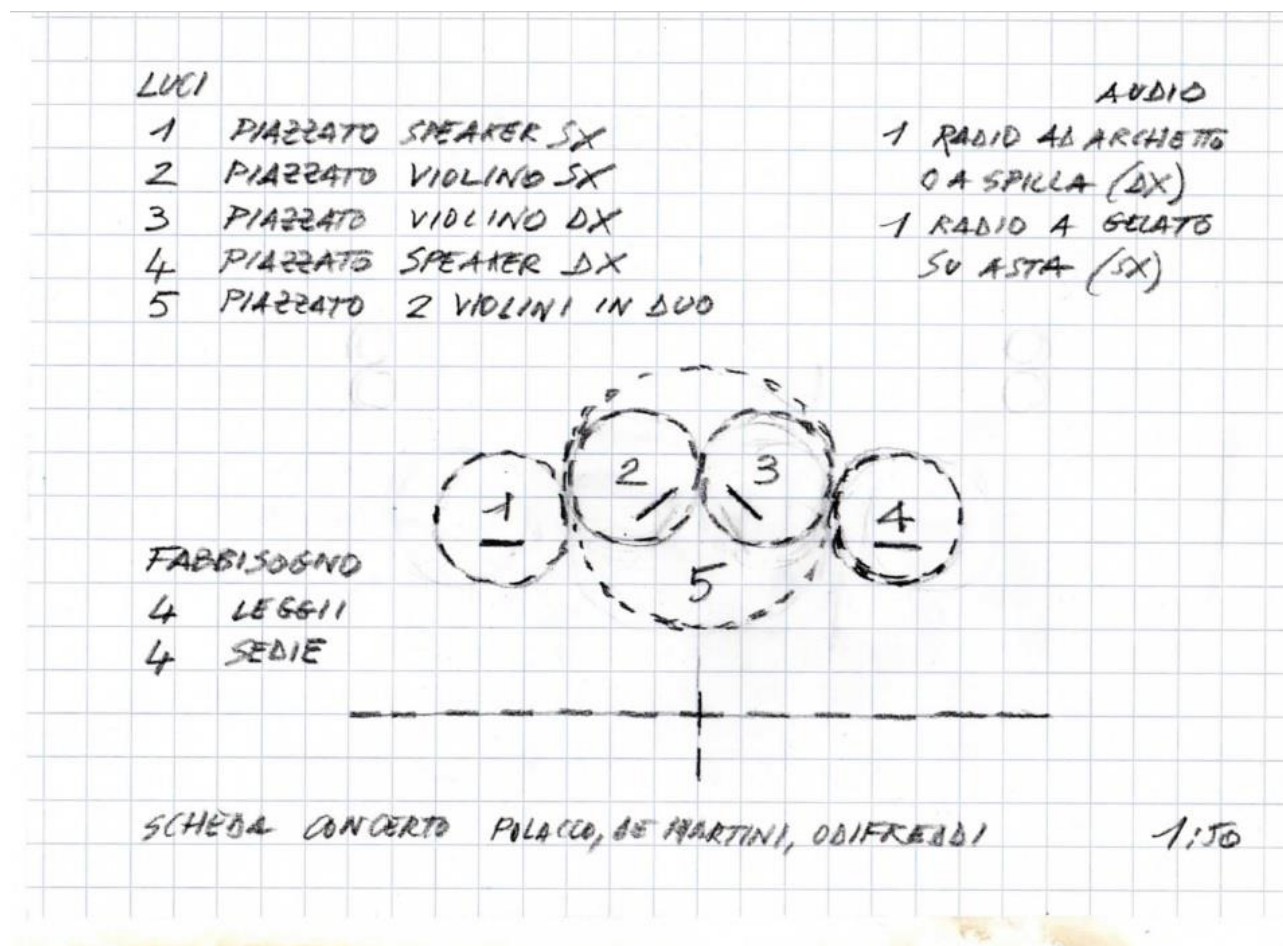 LUCI
1 PIAZZATO SPEAKER SX
2 PIAZZATO VIOLINO SX
3 PIAZZATO VIOLINO DX
4 PIAZZATO SPEAKER DX
5 PIAZZATO 2 VIOLINI IN DUO
AUDIO
1 RADIO AD ARCHETTO
O A SPILLA (DX)
1 RADIO A GELATO
SU ASTA (SX)
1
2
3
4
5
FABBISOGNO
4 LEGGII
4 SEDIE
SCHEDA CONCERTO POLACCO, DE MARTINI, ODIFREDDI 1:50